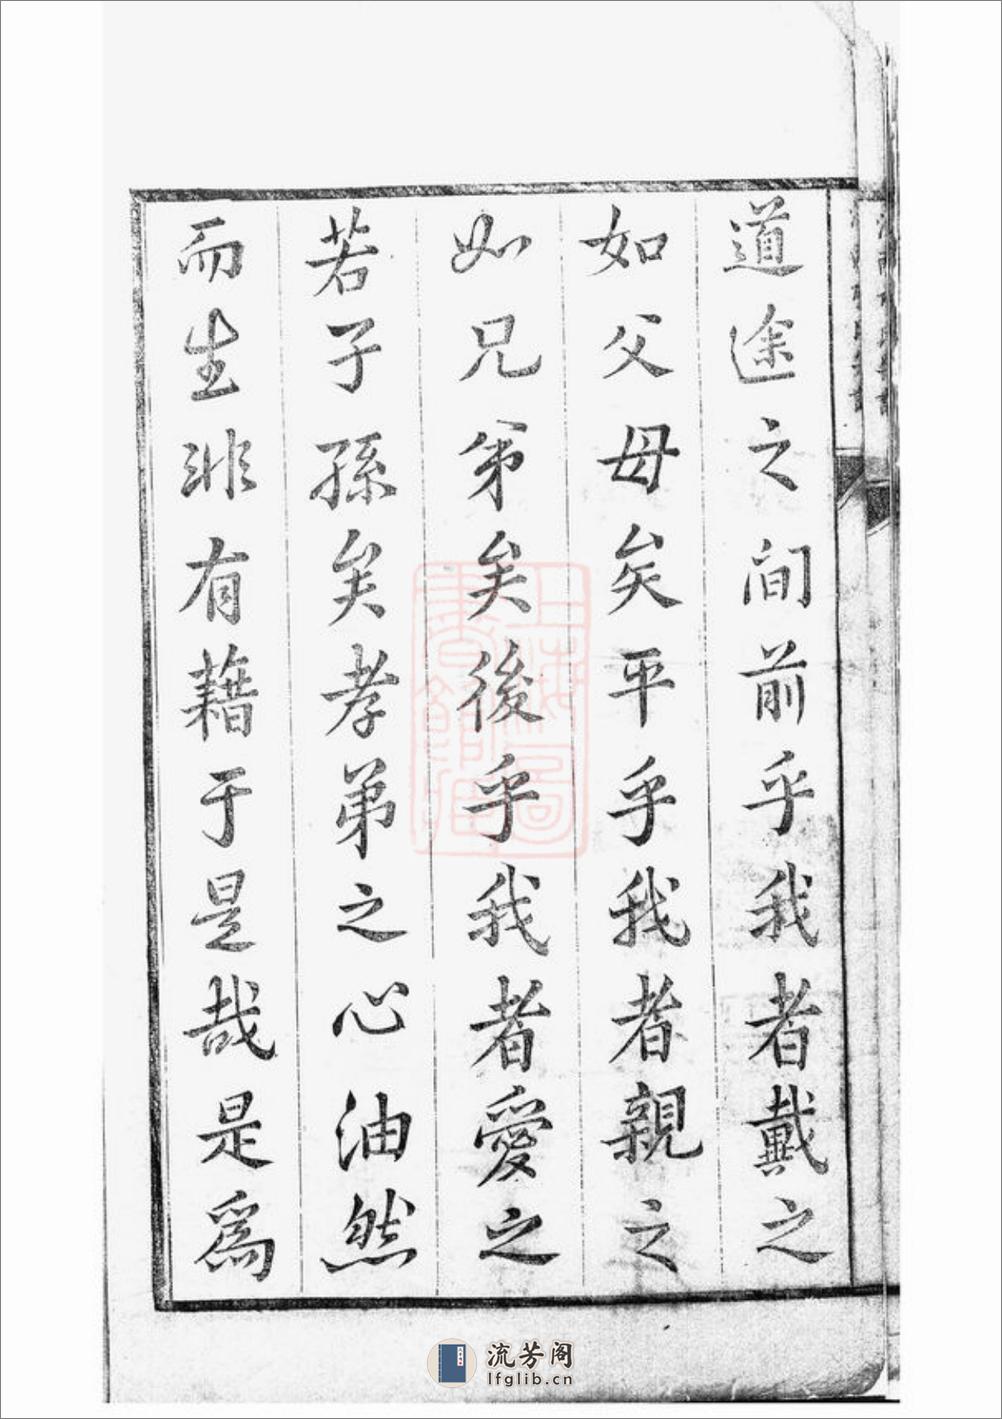 道途之間前乎我者戴之
如父母矣平乎我者親之
如兄弟矣後乎我者愛之
若子孫矣孝弟之心油然
而生非有藉于是哉是爲
上海圖書館藏
流芳阁
lfglib.cn